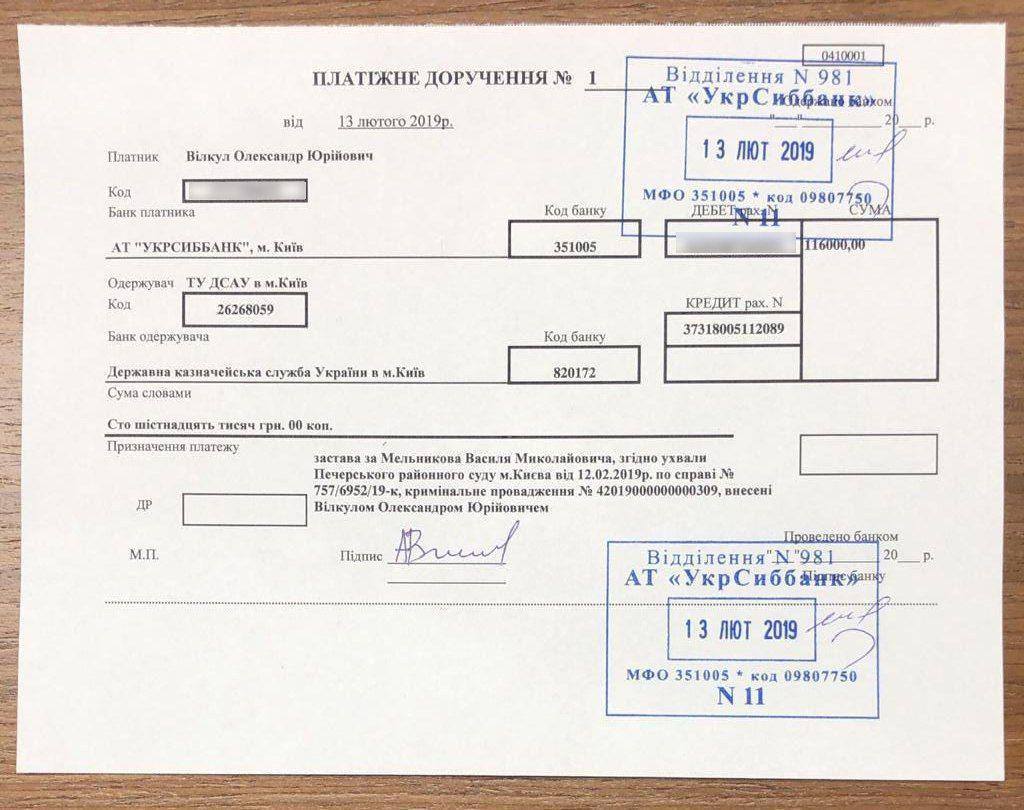 0410001
ПЛАТІЖНЕ ДОРУЧЕННЯ № 1
від 13 лютого 2019р.
Відділення N 981
АТ «УкрСиббанк»
Одержано банком
"___"__________ 20___ р.
13 ЛЮТ 2019
МФО 351005 * код 09807750
N 11
Платник Вілкул Олександр Юрійович
Код
Банк платника Код банку ДЕБЕТ рах. N СУМА
АТ "УКРСИББАНК", м. Київ 351005 116000,00
Одержувач ТУ ДСАУ в м.Київ
Код 26268059 КРЕДИТ рах. N
37318005112089
Банк одержувача Код банку
Державна казначейська служба України в м.Київ 820172
Сума словами
Сто шістнадцять тисяч грн. 00 коп.
Призначення платежу
застава за Мельникова Василя Миколайовича, згідно ухвали
Печерського районного суду м.Києва від 12.02.2019р. по справі №
757/6952/19-к, кримінальне провадження № 42019000000000309, внесені
Вілкулом Олександром Юрійовичем
ДР
Проведено банком
М.П. Підпис "___"__________ 20___ р.
Підпис банку
Відділення N 981
АТ «УкрСиббанк»
13 ЛЮТ 2019
МФО 351005 * код 09807750
N 11